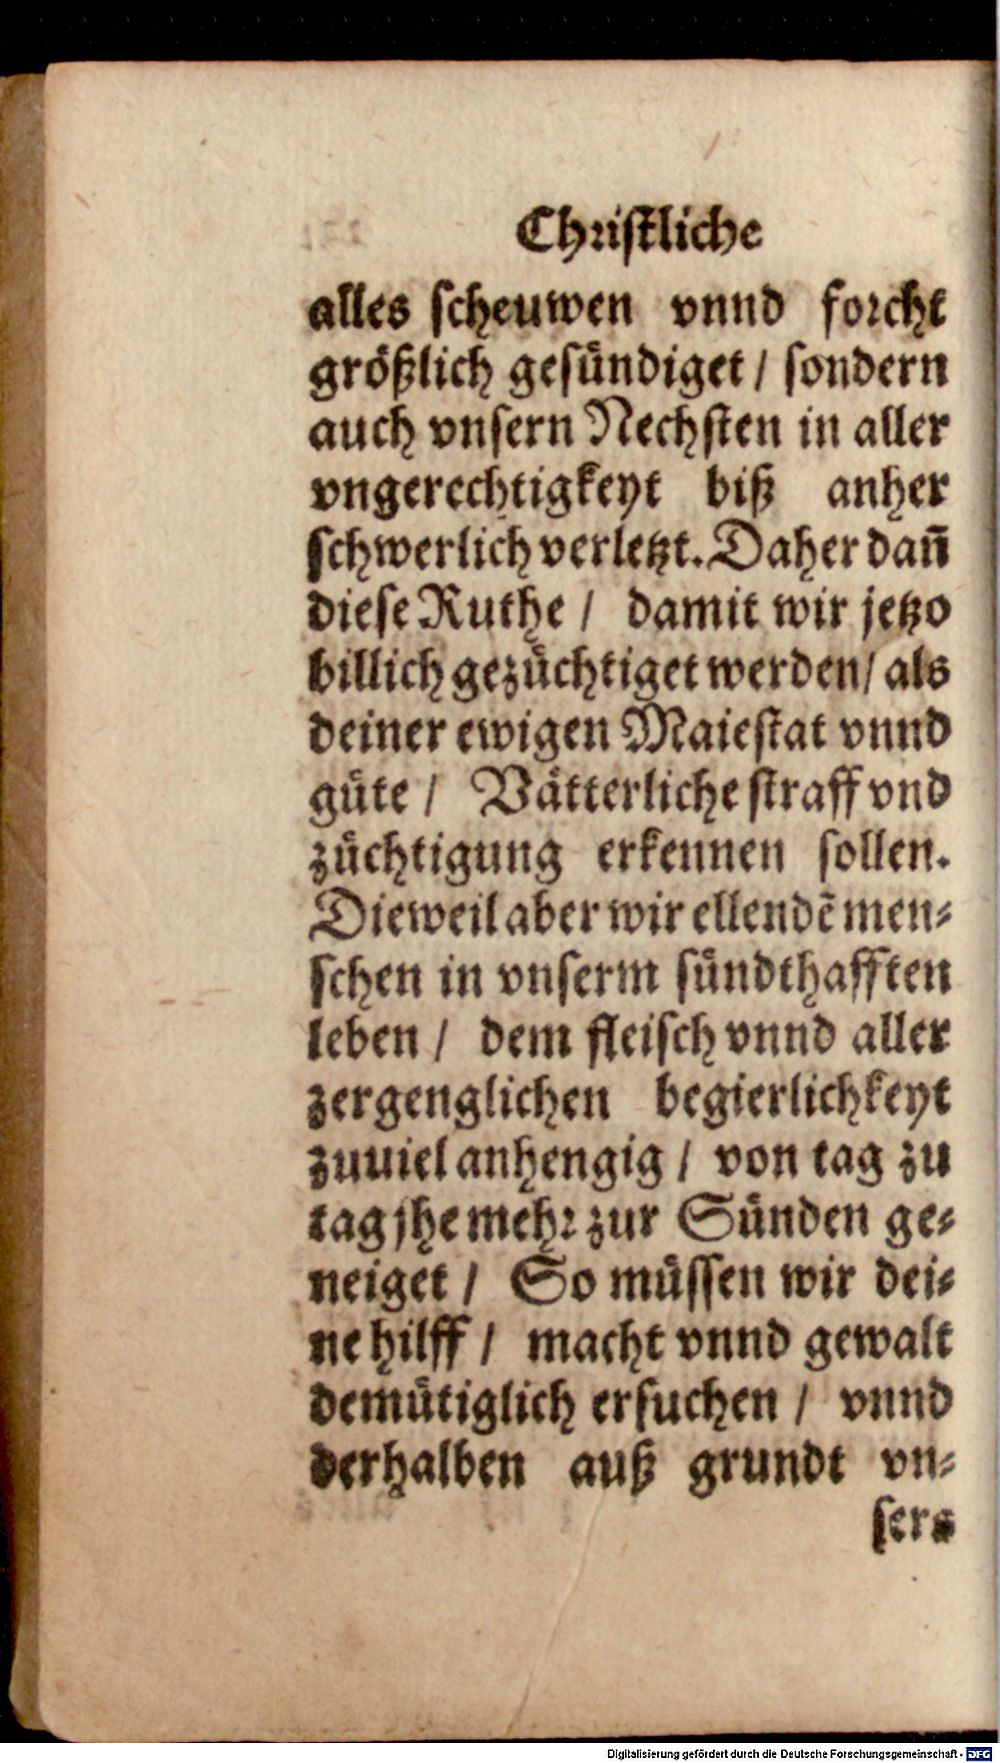 Christliche
alles scheuwen vnnd forcht
größlich gesündiget / sondern
auch vnsern Nechsten in aller
vngerechtigkeyt biß anher
schwerlich verletzt. Daher dañ
diese Ruthe / damit wir jetzo
billich gezüchtiget werden / als
deiner ewigen Maiestat vnnd
güte / Vätterliche straff vnd
züchtigung erkennen sollen.
Dieweil aber wir ellendẽ men-
schen in vnserm sündthafften
leben / dem fleisch vnnd aller
zergenglichen begierlichkeyt
zuuiel anhengig / von tag zu
tag jhe mehr zur Sünden ge-
neiget / So müssen wir dei-
ne hilff / macht vnnd gewalt
demütiglich ersuchen / vnnd
derhalben auß grundt vn-
sers
Digitalisierung gefördert durch die Deutsche Forschungsgemeinschaft - DFG